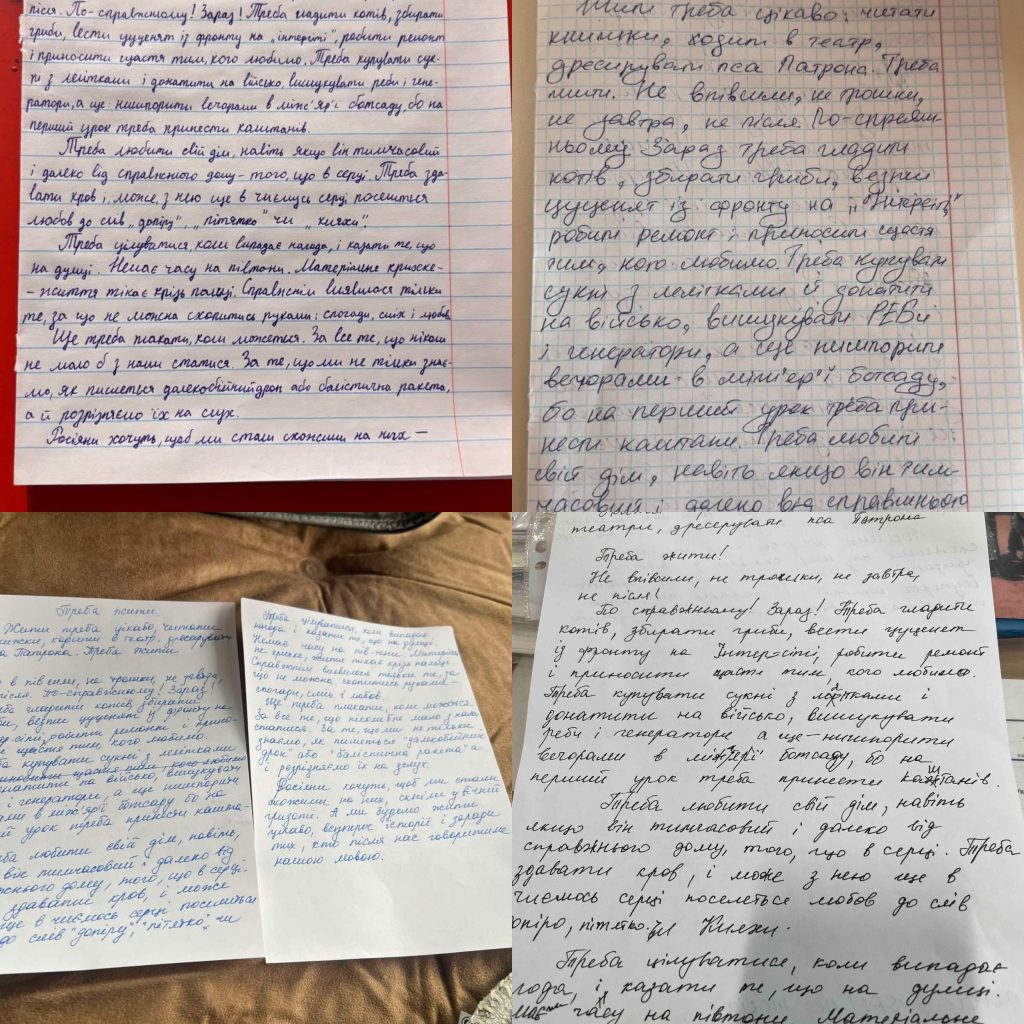 після. По-справжньому! Зараз! Треба гладити котів, збирати
гриби, вести цуценят із фронту на „інтерсіті", робити ремонт
і приносити щастя тим, кого любимо. Треба купувати сук-
ні з лелітками і донатити на військо, вишукувати реби і гене-
ратори, а ще: нишпорити вечорами в між'яр'ї ботсаду, бо на
перший урок треба принести каштанів.
Треба любити свій дім, навіть якщо він тимчасовий
і далеко від справжнього дому – того, що в серці. Треба зда-
вати кров і, може, з нею ще в чиємусь серці поселиться
любов до слів „допіру", „пітятко" чи „кияхи".
Треба цілуватися, коли випадає нагода, і казати те, що
на думці. Немає часу на півтони. Матеріальне крихке-
- життя тікає крізь пальці. Справжнім виявилося тільки
те, за що не можна схопитись руками: спогади, сміх і любов.
Ще треба плакати, коли можеться. За все те, що ніколи
не мало б з нами статися. За те, що ми не тільки знає-
мо, як пишеться далекобійний дрон або балістична ракета,
а й розрізняємо їх на слух.
Росіяни хочуть, щоб ми стали схожими на них —
Жити треба цікаво: читати
книжки, ходити в театр,
дресирувати пса Патрона. Треба
жити. Не впівсили, не трошки,
не завтра, не після По-справж-
ньому Зараз треба гладити
котів, збирати гриби, везти
цуценят із фронту на „Інтерсіті"
робити ремонт і приносити щастя
тим, кого любимо. Треба купувати
сукні з лелітками й донатити
на військо, вишукувати РЕБи
і генератори, а ще нишпорити
вечорами в між'яр'ї ботсаду,
бо на перший урок треба при-
нести каштани. Треба любити
свій дім, навіть якщо він тим-
часовий і далеко від справжнього
Треба жити
Жити треба цікаво, читати
книжки, ходити в театр, дресирувати
па Патрона. Треба жити
в пів сили, не трошки, не завтра,
після. По-справжньому! Зараз!
гладити котів, збирати
везти цуценят із фронту на
робити ремонт і
щастя тим, кого любимо.
купувати сукні з лелітками
донатити на військо, вишукувати
і генератори, а ще нишпорити
в між'ярʼї ботсаду бо на
урок треба принести кашта-
любити свій дім, навіть,
він тимчасовий і далеко від
дому, того, що в серці.
здавати кров, і може
ще в чиємось серці поселиться
до слів "допіру", "пітятко" чи
Треба цілуватися, коли випадає
нагода і казати те, що на думці.
Немає часу на пів-тони. Матеріальне
не крихке, життя тікає крізь пальці.
Справжнім виявилося тільки те, за
що не можна схопитись руками -
спогади, сміх і любов.
Ще треба плакати, коли можеться.
За все те, що ніколи б не мало з нами
статися. За те, що ми не тільки
знаємо, як пишеться "далекобійний
дрон" або "балістична ракета" а
і розрізняємо їх на слух.
Росіяни хочуть, щоб ми стали
схожими на них, скніли у вічній
гризоті. А ми будемо жити
цікаво, всупереч історії і заради
тих, хто після нас говоритиме
нашою мовою.
театри, дресерувати пса Патрона
Треба жити!
Не впівсили, не трошки, не завтра,
не після!
По справжньому! Зараз! Треба гладити
котів, збирати гриби, вести цуценят
із фронту на Інтер-сіті, робити ремонт
і приносити щастя тим, кого любимо.
Треба купувати сукні з лелітками і
донатити на військо, вишукувати
реби і генератори а ще – нишпорити
вечорами в між'ярʼї ботсаду, бо на
перший урок треба принести каштанів.
Треба любити свій дім, навіть
якщо він тимчасовий і далеко від
справжнього дому, того, що в серці. Треба
здавати кров, і може з нею ще в
чиємось серці поселеться любов до слів
допіро, пітятко. чи Кияхи.
Треба цілуватися, коли випадає
года, і казати те, що на думці.
часу на півтони Матеріальне